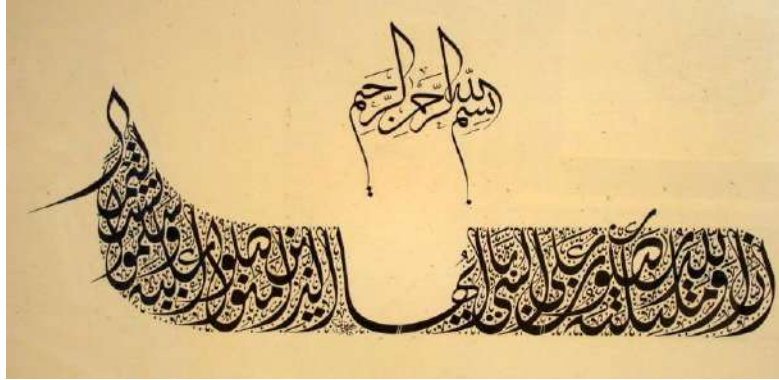 بسم الله الرحمن الرحيم
ان الله وملئكته يصلون على النبي يا ايها الذين امنوا صلوا عليه وسلموا تسليما